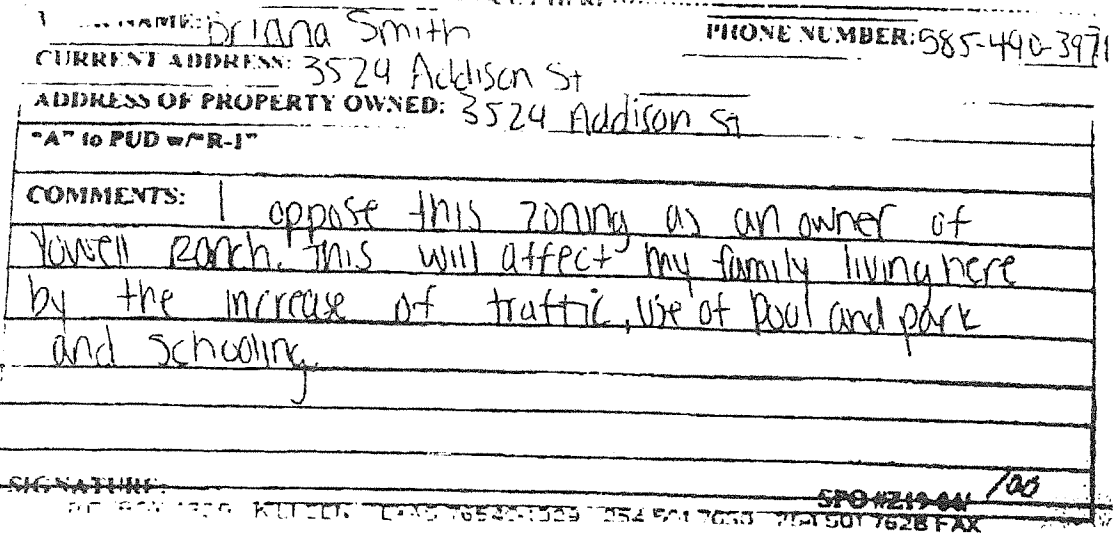 NAME: Briana Smith PHONE NUMBER: 585-490-3971
CURRENT ADDRESS: 3524 Addison St
ADDRESS OF PROPERTY OWNED: 3524 Addison St
"A" to PUD w/"R-1"
COMMENTS: I oppose this zoning as an owner of
Yowell Ranch. This will affect my family living here
by the increase of traffic, use of pool and park
and schooling.
SIGNATURE: SPO #Z19-04/ /00
KILLEEN 254 501 7628 FAX